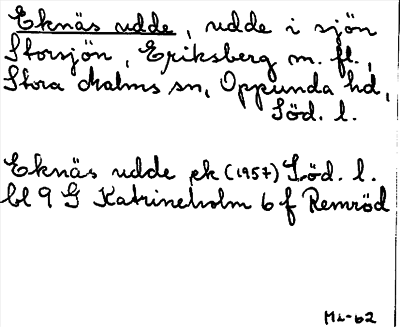 Eknäs udde, udde i sjön
Storsjön, Eriksberg m. fl.,
Stora Malms sn, Oppunda hd,
Söd. l.
Eknäs udde ek (1957) Söd. l.
bl 9 G Katrineholm 6 f Remröd